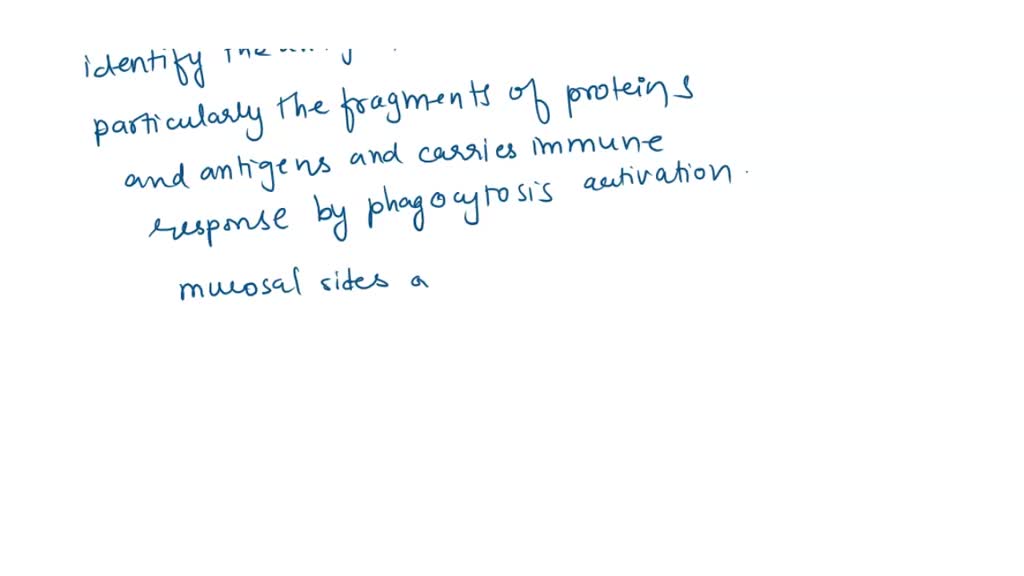 identify the
particularly the fragments of proteins
and antigens and carries immune
response by phagocytosis activation.
mucosal sides a